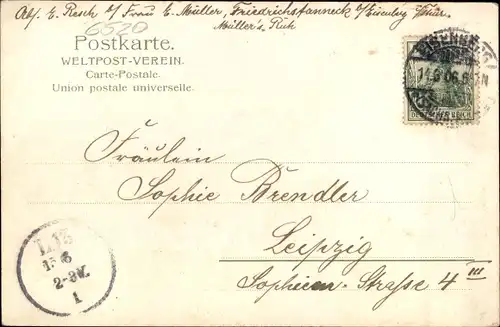 Abs. E. Resch b/ Frau E. Müller, Friedrichstanneck b/ Eisenbg Thür.
Müller's Ruh
6520
Postkarte.
WELTPOST-VEREIN.
Carte-Postale.
Union postale universelle.
EISENBERG
14.8.06.
DEUTSCHES REICH
Fräulein
Sophie Brendler
Leipzig
Sophien-Straße 4 III
L13
2-3N.
1